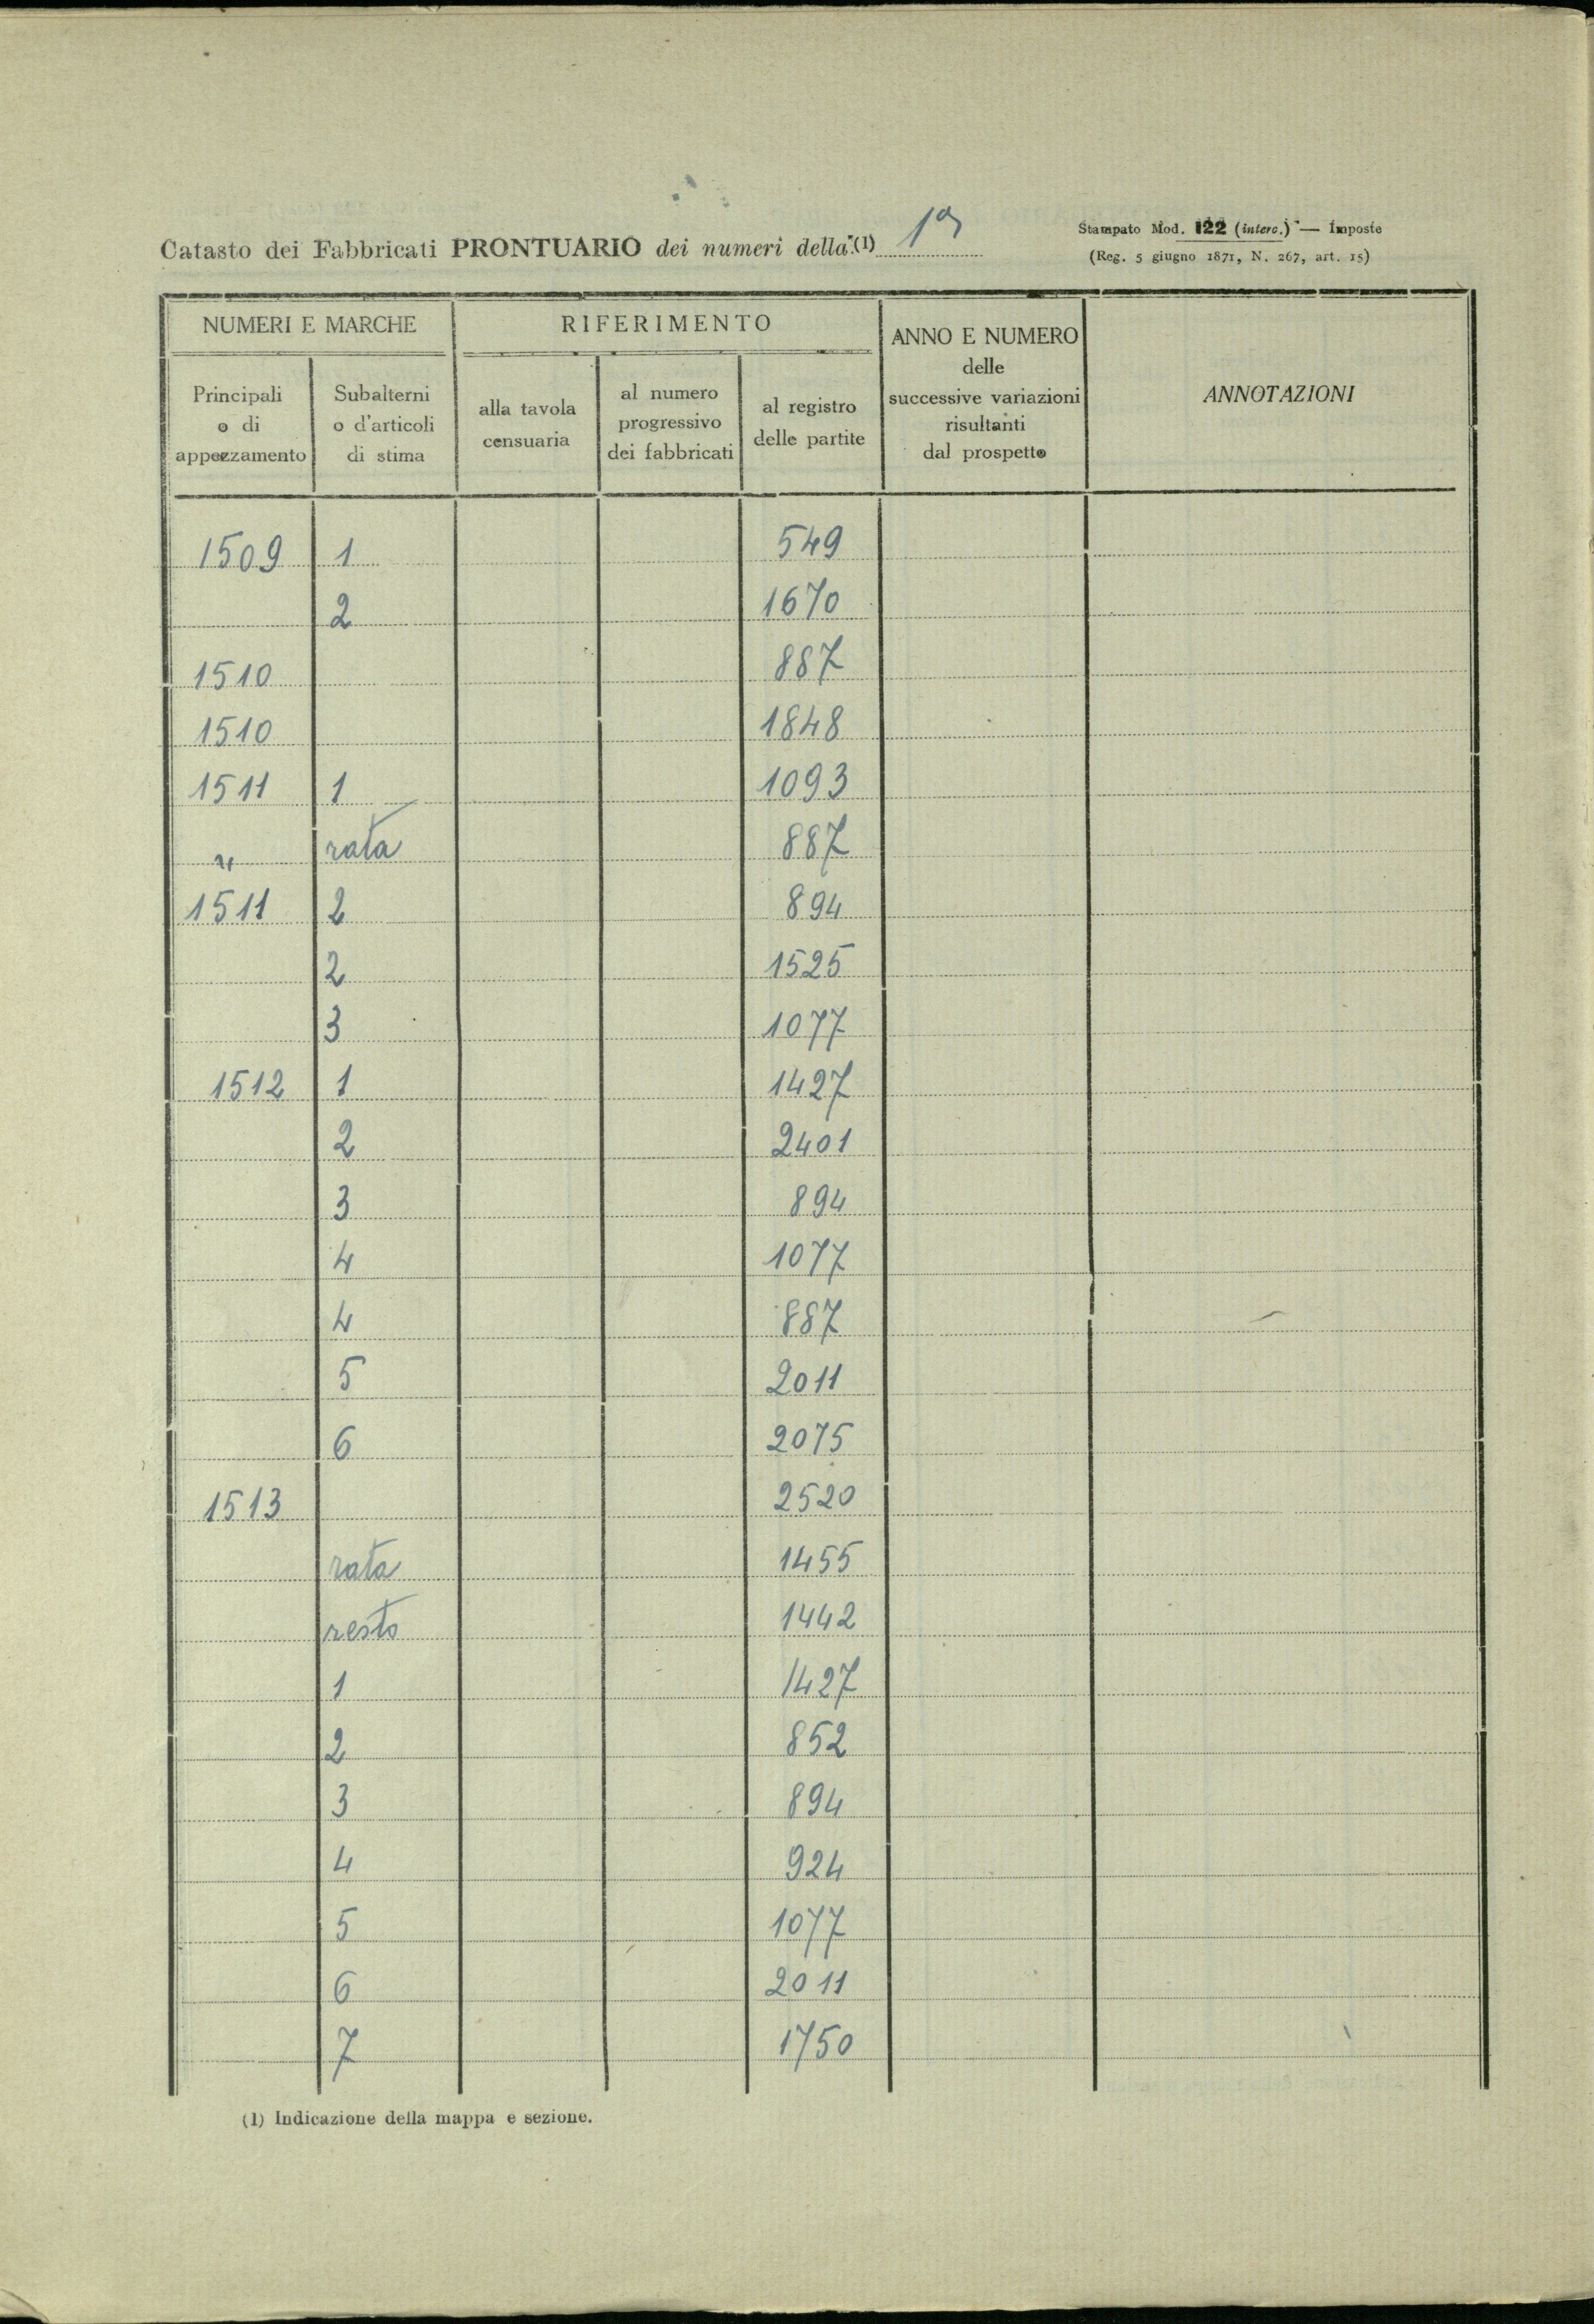 Catasto dei Fabbricati PRONTUARIO dei numeri della (1) 1ª
Stampato Mod. 122 (interc.) — Imposte
(Reg. 5 giugno 1871, N. 267, art. 15)
NUMERI E MARCHE
RIFERIMENTO
ANNO E NUMERO
delle
successive variazioni
risultanti
dal prospetto
ANNOTAZIONI
Principali
o di
appezzamento
Subalterni
o d'articoli
di stima
alla tavola
censuaria
al numero
progressivo
dei fabbricati
al registro
delle partite
1509 1 549
2 1670
1510 887
1510 1848
1511 1 1093
„ rata 887
1511 2 894
2 1525
3 1077
1512 1 1427
2 2401
3 894
4 1077
4 887
5 2011
6 2075
1513 2520
rata 1455
resto 1442
1 1427
2 852
3 894
4 924
5 1077
6 2011
7 1750
(1) Indicazione della mappa e sezione.